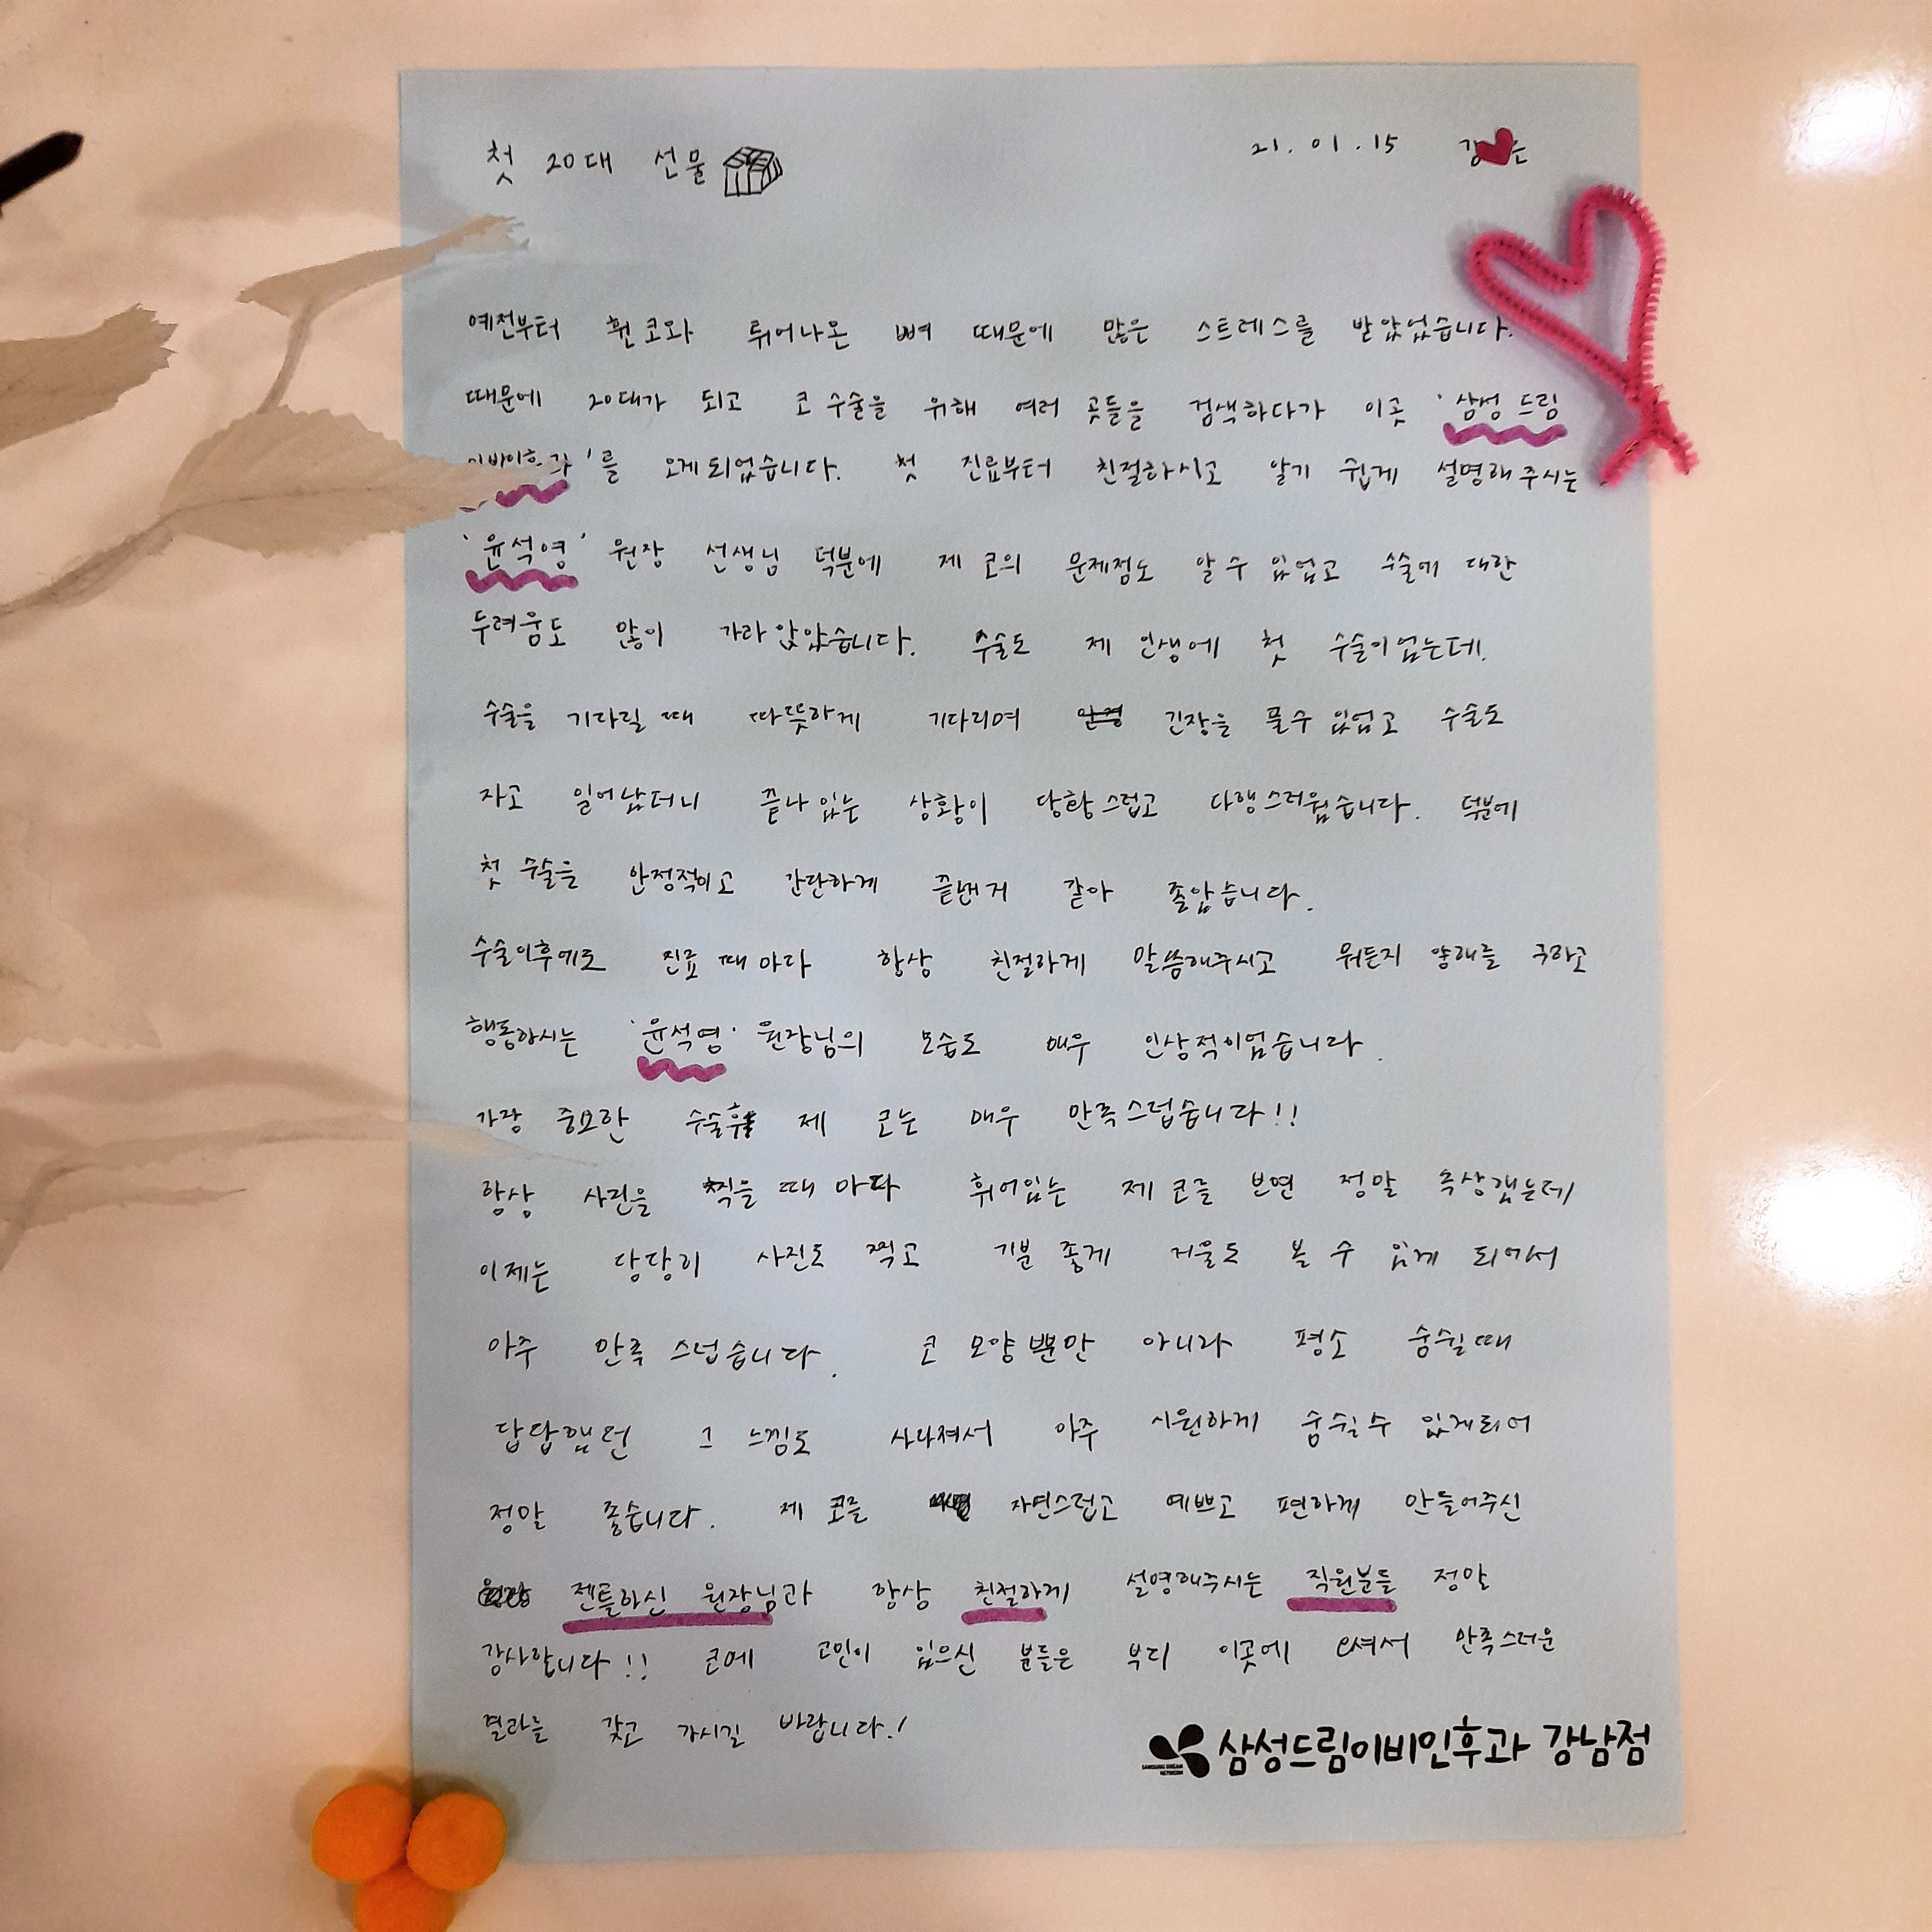 첫 20대 선물
21. 01. 15 강 은
예전부터 휜 코와 튀어나온 뼈 때문에 많은 스트레스를 받았었습니다.
때문에 20대가 되고 코 수술을 위해 여러 곳들을 검색하다가 이곳 '삼성 드림
이비인후과'를 오게되었습니다. 첫 진료부터 친절하시고 알기 쉽게 설명해주시는
'윤석영' 원장 선생님 덕분에 제 코의 문제점도 알 수 있었고 수술에 대한
두려움도 많이 가라앉았습니다. 수술도 제 인생에 첫 수술이었는데.
수술을 기다릴 때 따뜻하게 기다리며 긴장을 풀수 있었고 수술도
자고 일어났더니 끝나있는 상황이 당황스럽고 다행스러웠습니다. 덕분에
첫 수술을 안정적이고 간단하게 끝낸거 같아 좋았습니다.
수술이후에도 진료 때 마다 항상 친절하게 말씀해주시고 뭐든지 양해를 구하고
행동하시는 '윤석영' 원장님의 모습도 매우 인상적이었습니다.
가장 중요한 수술후 제 코는 매우 만족스럽습니다!!
항상 사진을 찍을 때 마다 휘어있는 제 코를 보면 정말 속상했는데
이제는 당당히 사진도 찍고 기분 좋게 거울도 볼 수 있게 되어서
아주 만족스럽습니다. 코 모양뿐만 아니라 평소 숨쉴때
답답했던 그 느낌도 사라져서 아주 시원하게 숨쉴수 있게되어
정말 좋습니다. 제 코를 자연스럽고 예쁘고 편하게 만들어주신
젠틀하신 원장님과 항상 친절하게 설명해주시는 직원분들 정말
감사합니다!! 코에 고민이 있으신 분들은 부디 이곳에 오셔서 만족스러운
결과를 갖고 가시길 바랍니다.!
SAMSUNG DREAM
NETWORK
삼성드림이비인후과 강남점